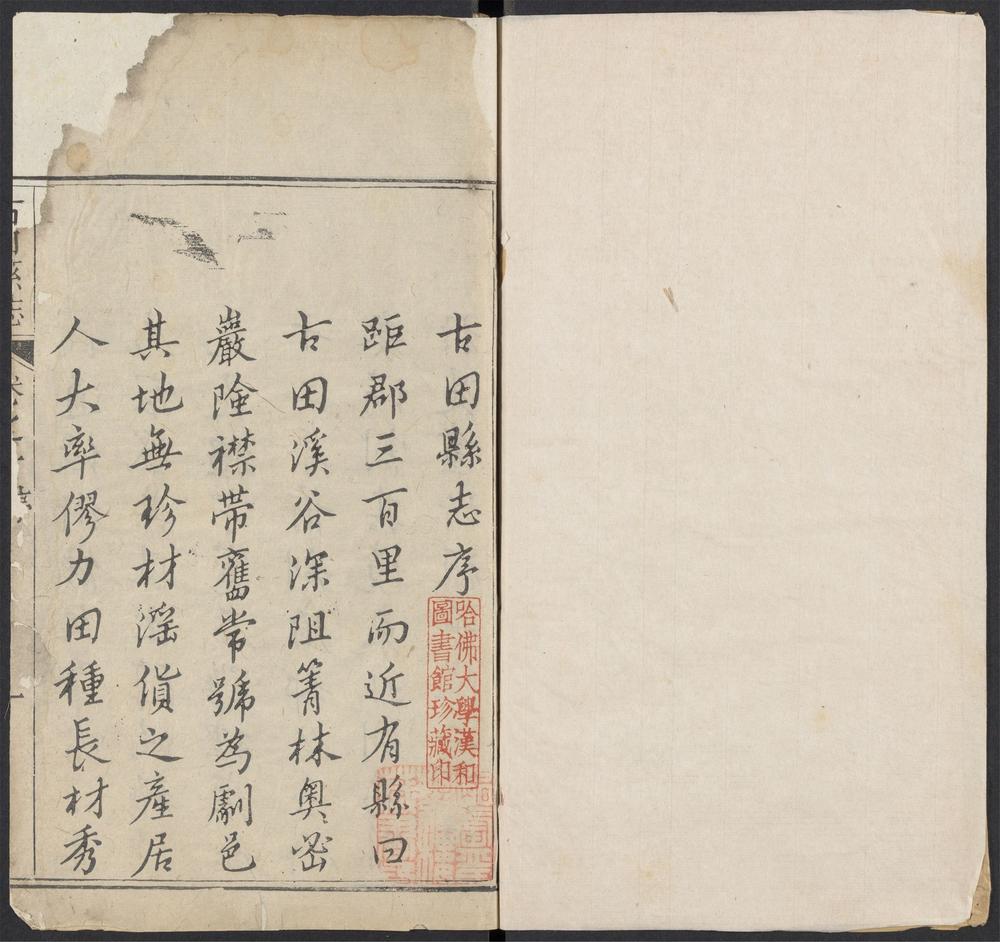 古田縣志序
距郡三百里而近有縣曰
古田溪谷深阻箐林奧密
巖險襟帶舊常號為劇邑
其地無珍材滛貨之產居
人大率僇力田種長材秀
哈佛大學漢和
圖書館珍藏印